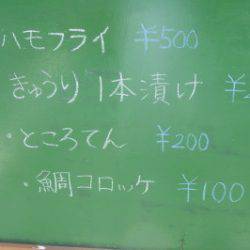 ハモフライ ¥500
きゅうり1本漬け ¥
・ところてん ¥200
・鯛コロッケ ¥100